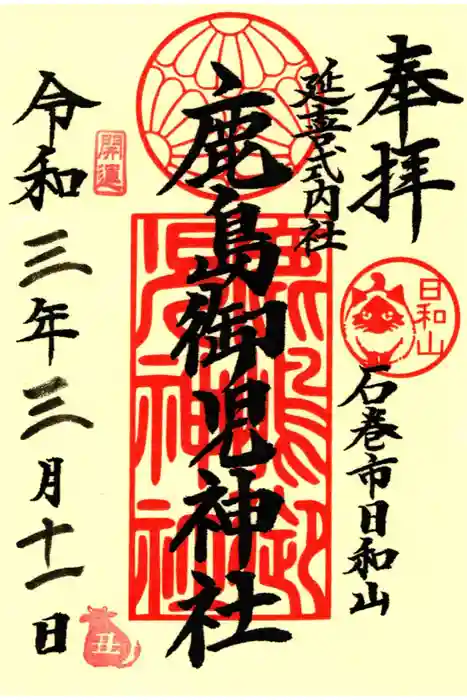 奉拝
延喜式内社
日和山
石巻市日和山
鹿島御児神社
鹿嶋御児神社
開運
令和三年三月十一日
丑